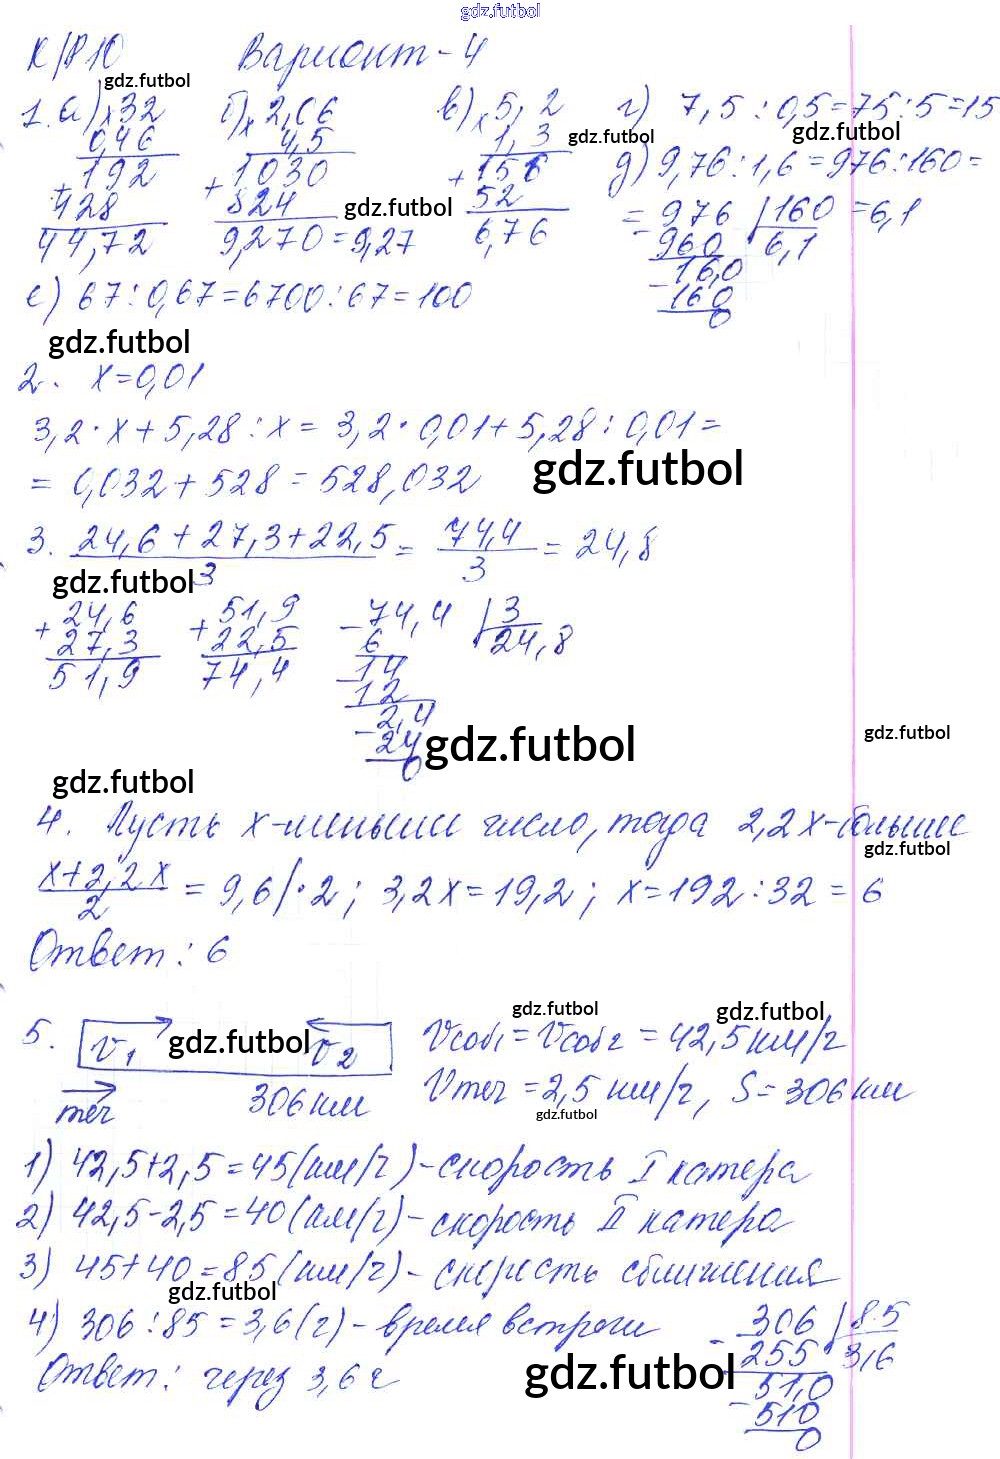 gdz.futbol
К/Р10 Вариант-4
gdz.futbol
1. а) ×32 б) ×2,06 в) ×5,2 г) 7,5 : 0,5 = 75 : 5 = 15
0,46 4,5 1,3 gdz.futbol gdz.futbol
+192 +1030 +156 д) 9,76 : 1,6 = 976 : 160 =
128 824 gdz.futbol 52 = -976 |160 = 6,1
14,72 9,270 = 9,27 6,76 960 6,1
-16,0
160
0
е) 67 : 0,67 = 6700 : 67 = 100
gdz.futbol
2. x = 0,01
3,2 · x + 5,28 : x = 3,2 · 0,01 + 5,28 : 0,01 =
= 0,032 + 528 = 528,032
gdz.futbol
3. 24,6 + 27,3 + 22,5 = 74,4 = 24,8
3 3
gdz.futbol
+24,6 +51,9 -74,4 |3
27,3 22,5 6 24,8
51,9 74,4 -14
12
-2,4
24
0
gdz.futbol
gdz.futbol
gdz.futbol
4. Пусть x-меньшее число, тогда 2,2x-большее
gdz.futbol
x+2,2x = 9,6 |·2 ; 3,2x = 19,2 ; x = 192 : 32 = 6
2
Ответ: 6
gdz.futbol gdz.futbol
5. v1 gdz.futbol v2 Vсоб1 = Vсоб2 = 42,5 км/ч
теч 306 км Vтеч = 2,5 км/ч, S = 306 км
gdz.futbol
1) 42,5+2,5 = 45 (км/ч) - скорость I катера
2) 42,5-2,5 = 40 (км/ч) - скорость II катера
3) 45+40 = 85 (км/ч) - скорость сближения
gdz.futbol
4) 306 : 85 = 3,6 (ч) - время встречи -306 |85
Ответ: через 3,6 ч gdz.futbol 255 3,6
-51,0
510
0